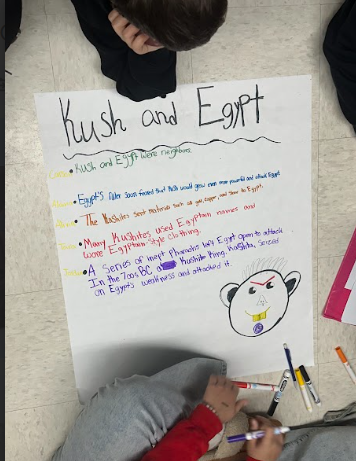 Kush and Egypt
• Kush and Egypt were neighbors.
• Egypt's ruler feared that Kush would grow even more powerful and attack Egypt
• The Kushites sent materials such as gold, copper, and stone to Egypt.
• Many Kushites used Egyptian names and
wore Egyptian style clothing.
• A Series of inept Pharaohs left Egypt open to attack
In the 700s BC a Kushite King, Kashta, Seized
on Egypts weakness and attacked it.